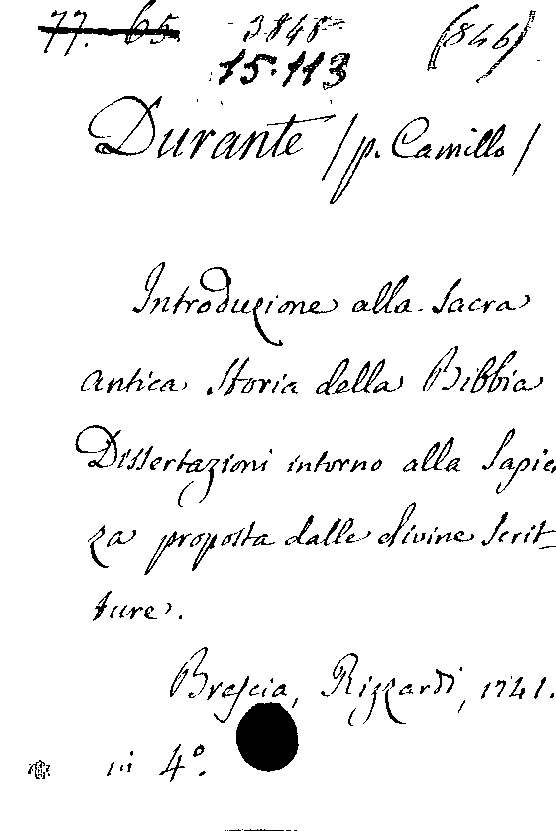 77. 65. 3848 (846)
15.113
Durante / p. Camillo /
Introduzione alla Sacra
antica Storia della Bibbia
Dissertazioni intorno alla Sapie
za proposta dalle divine Scrit-
ture.
Brescia, Rizzardi, 1741.
in 4º.